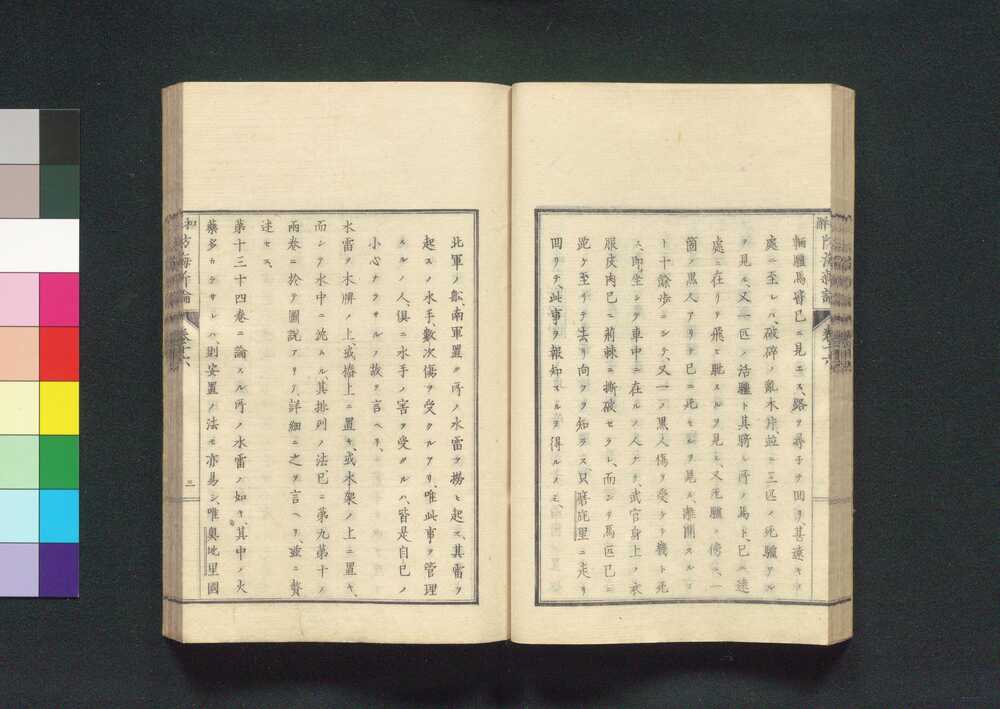 輛騾馬審已ニ見エス、路ヲ尋子テ回リ、甚遠キノ
處ニ至レハ、破碎ノ亂木片、並ニ三匹ノ死騾アル
ヲ見ル、又一匹ノ活騾ト其騎ル所ノ馬ト、已ニ遠
處ニ在リ飛ヒ馳スルヲ見ル、又死騾ノ傍ニ、一
箇ノ黒人アリテ已ニ死セルヲ見ル、離開スルコ
ト十餘歩ニシテ、又一ノ黒人傷ヲ受ケテ幾ト死
ス、即坐シテ車中ニ在ルノ人ナリ、武官身上ノ衣
服皮肉已ニ荊棘ニ撕破セラレ、而シテ馬匹已ニ
跪ケ至リテ去リ向フヲ知ラス、只磨庇里ニ走リ
回リテ、此事ヲ報知スルヲ得ルノミ、
北軍ノ船、南軍置ク所ノ水雷ヲ撈ヒ起ス、其雷ヲ
起スノ水手、數次傷ヲ受クルアリ、唯此事ヲ管理
スルノ人、俱ニ水手ノ害ヲ受ケルハ、皆是自己ノ
小心ナラサルノ故ト言ヘリ、
水雷ヲ木牌ノ上、或樁上ニ置キ、或木架ノ上ニ置キ、
而シテ水中ニ沈ムル、其排列ノ法、已ニ第九第十ノ
兩卷ニ於テ圖説アリテ、詳細ニ之ヲ言ヘリ、茲ニ贅
述セス、
第十三十四卷ニ論スル所ノ水雷ノ如キ、其中ノ火
藥多カラサレハ、則安置ノ法モ亦易シ、唯奧地里國
防海新論
卷十六
三